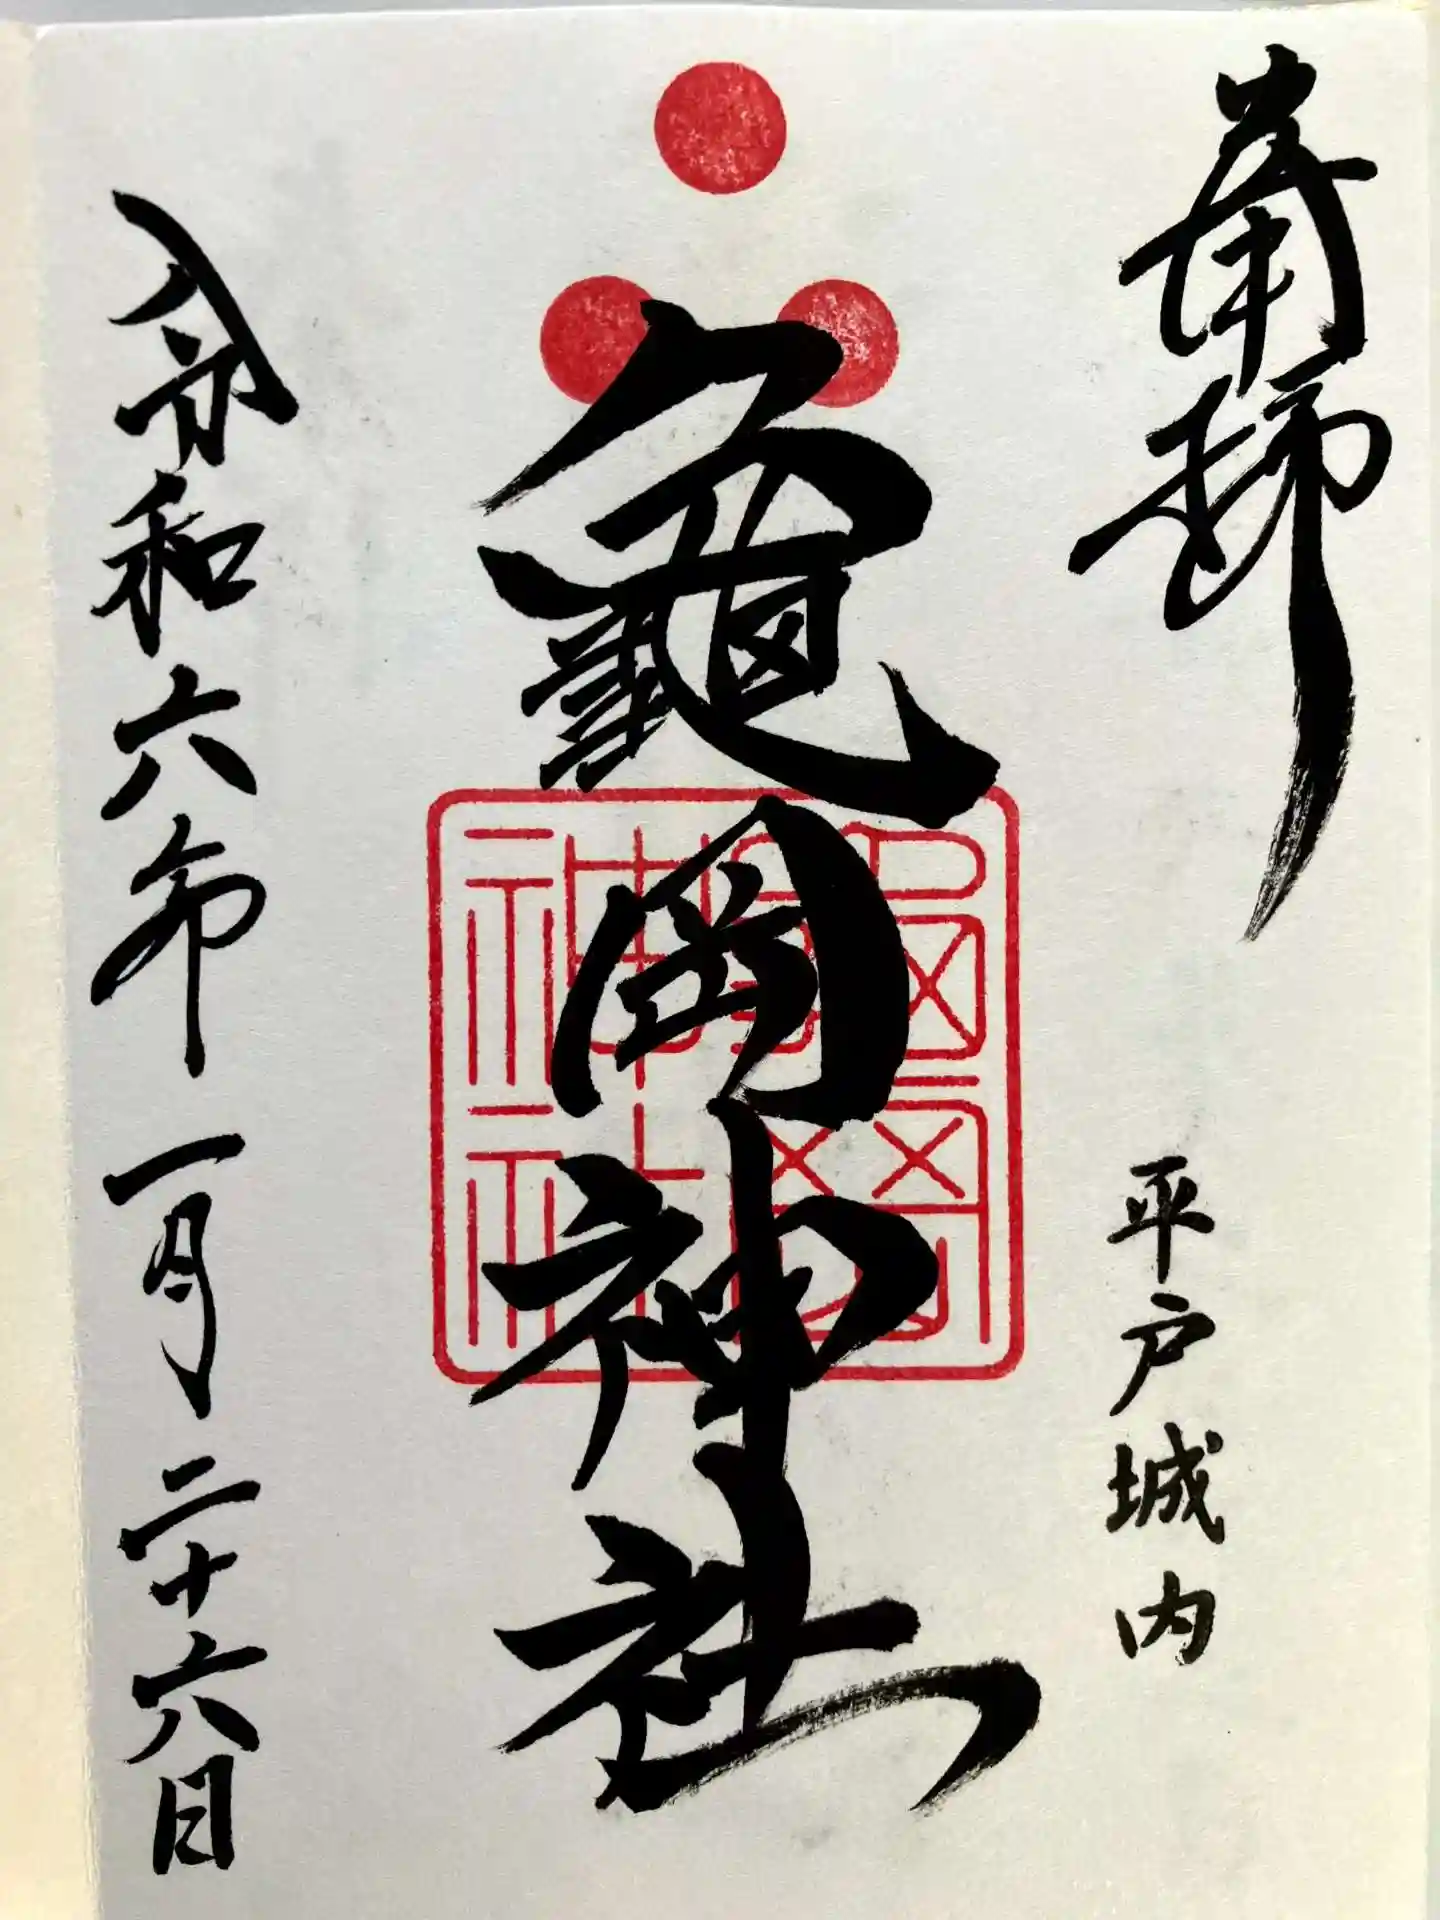 奉拝
平戸城内
龜岡神社
龜岡神社
令和六年一月二十六日